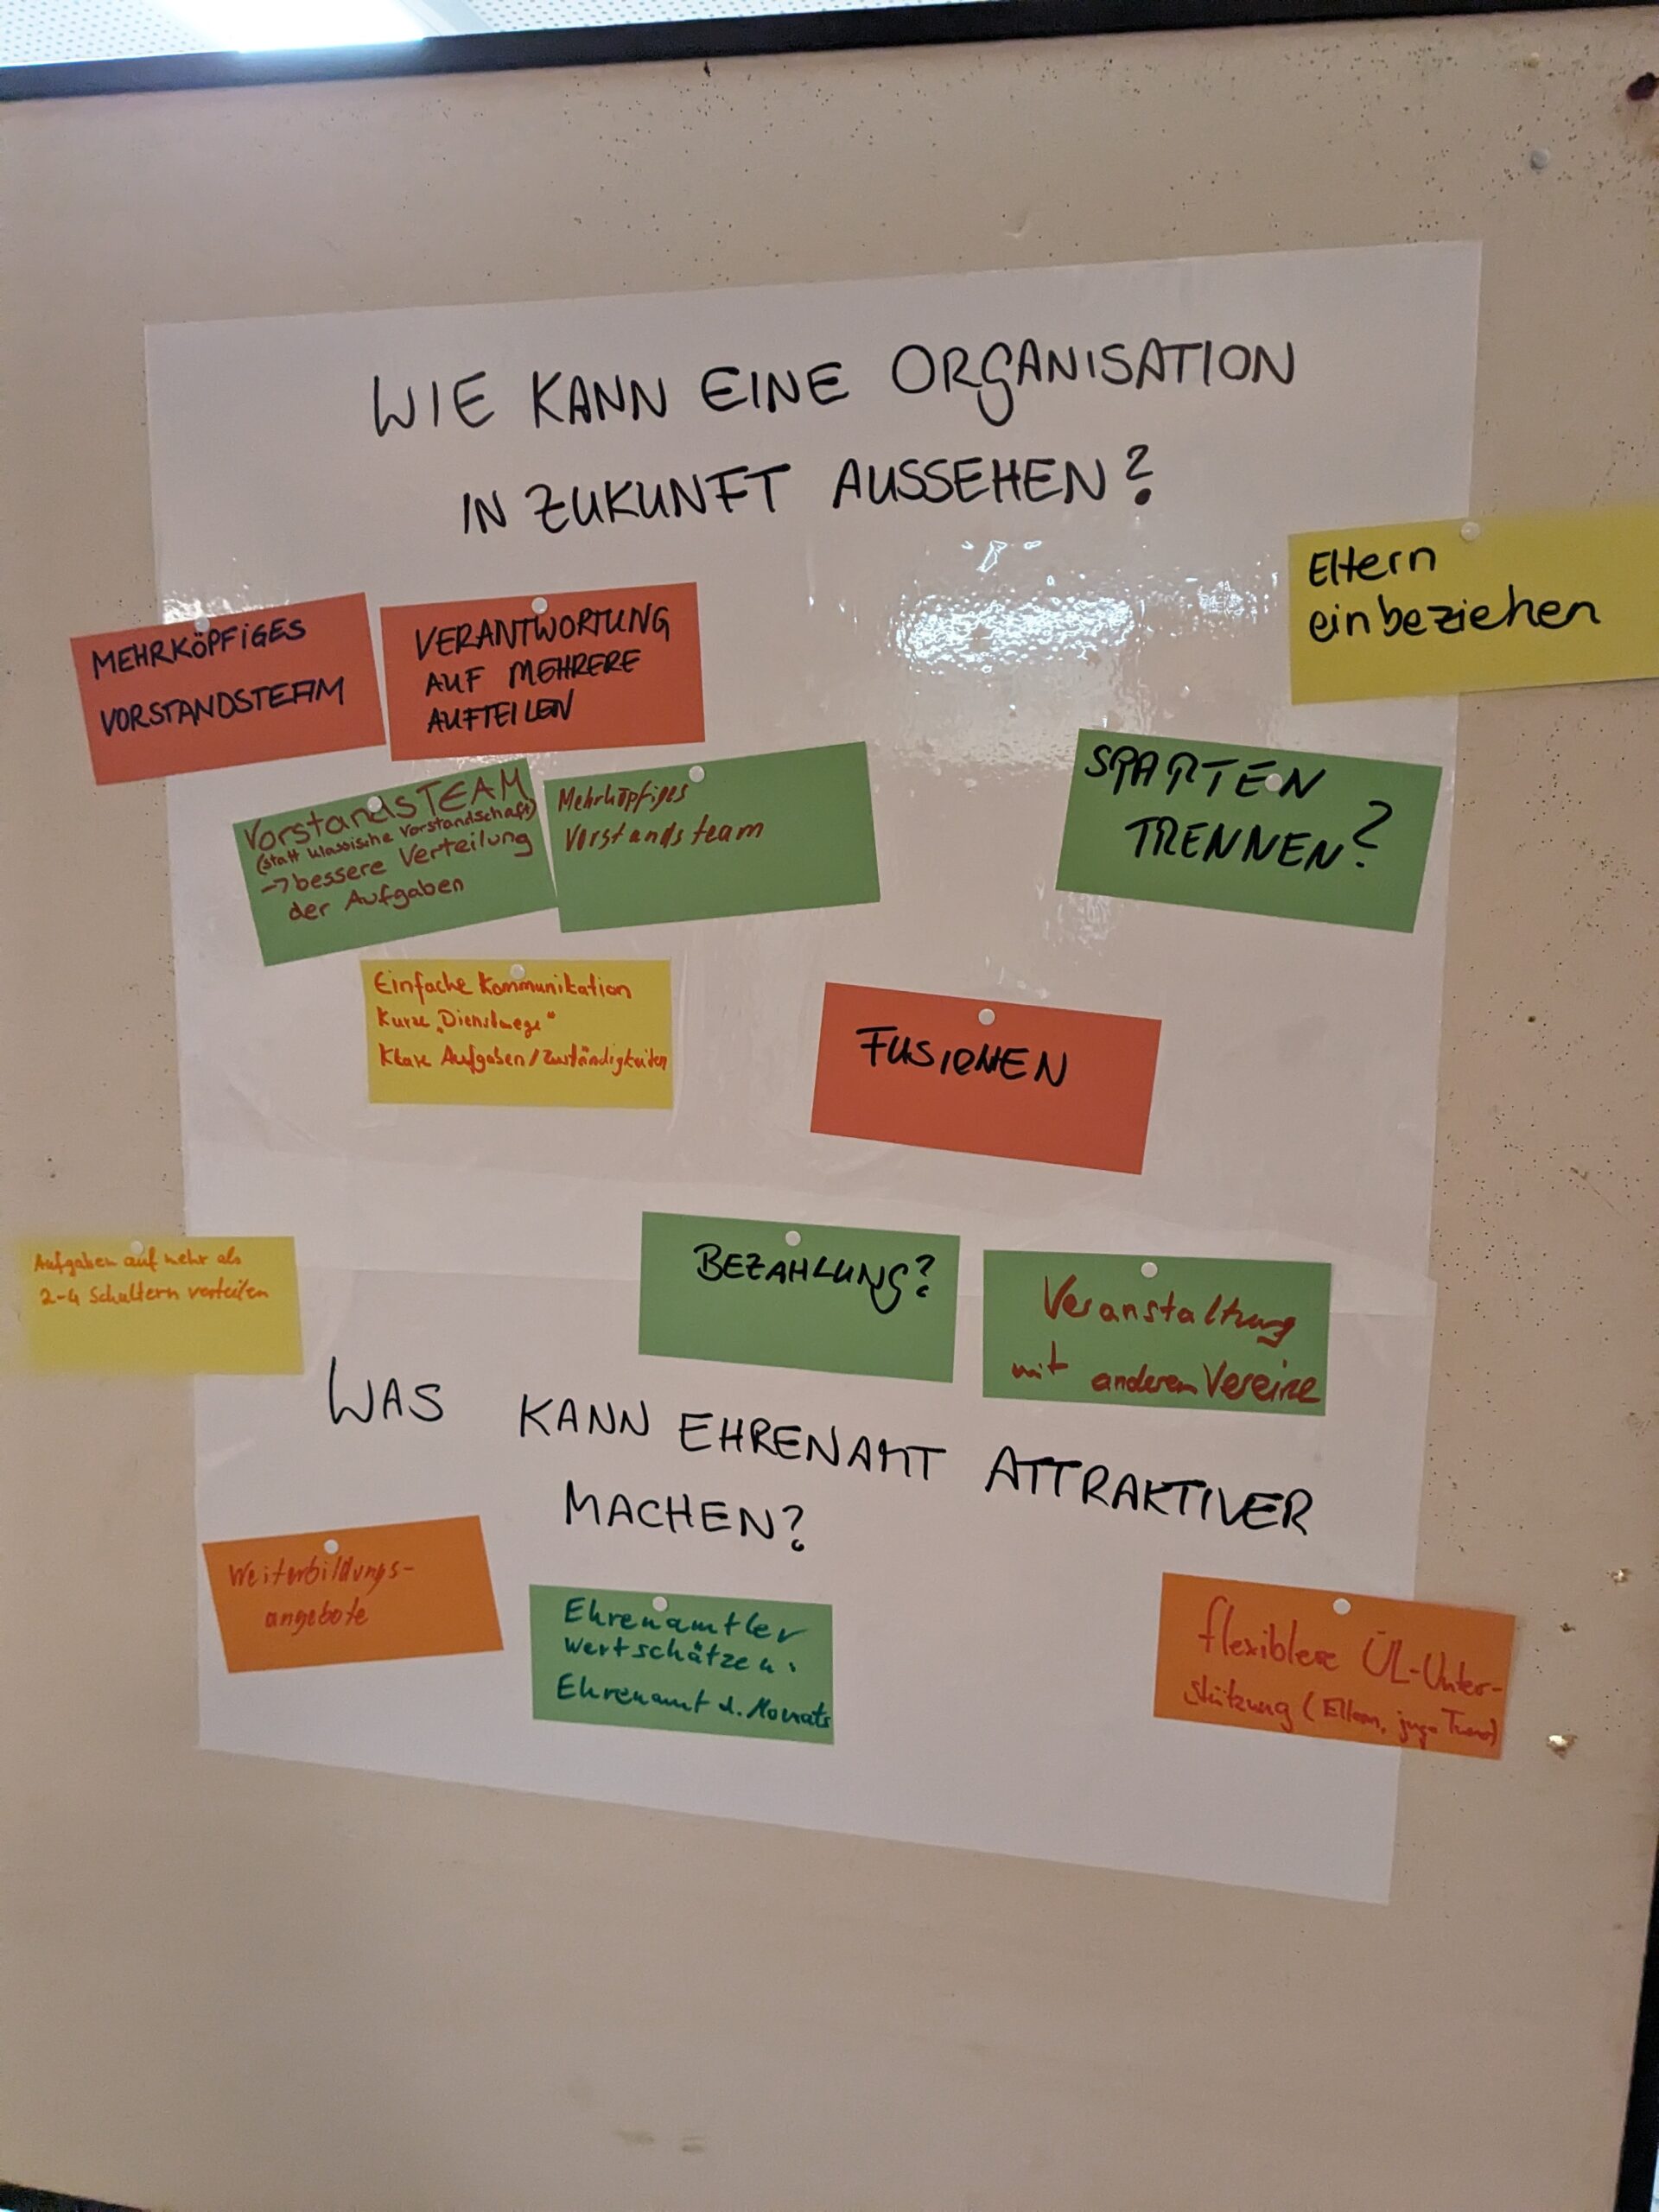 WIE KANN EINE ORGANISATION
IN ZUKUNFT AUSSEHEN?
Eltern
einbeziehen
MEHRKÖPFIGES
VORSTANDSTEAM
VERANTWORTUNG
AUF MEHRERE
AUFTEILEN
VorstandsTEAM
(statt klassische Vorstandschaft)
→ bessere Verteilung
der Aufgaben
Mehrköpfiges
Vorstandsteam
SPARTEN
TRENNEN?
Einfache Kommunikation
Kurze „Dienstwege“
Klare Aufgaben/Zuständigkeiten
FUSIONEN
Aufgaben auf mehr als
2-4 Schultern verteilen
BEZAHLUNG?
Veranstaltung
mit anderen Vereine
WAS KANN EHRENAMT ATTRAKTIVER
MACHEN?
Weiterbildungs-
angebote
Ehrenamtler
wertschätzen:
Ehrenamt d. Monats
flexiblere ÜL-Unter-
stützung (Eltern,